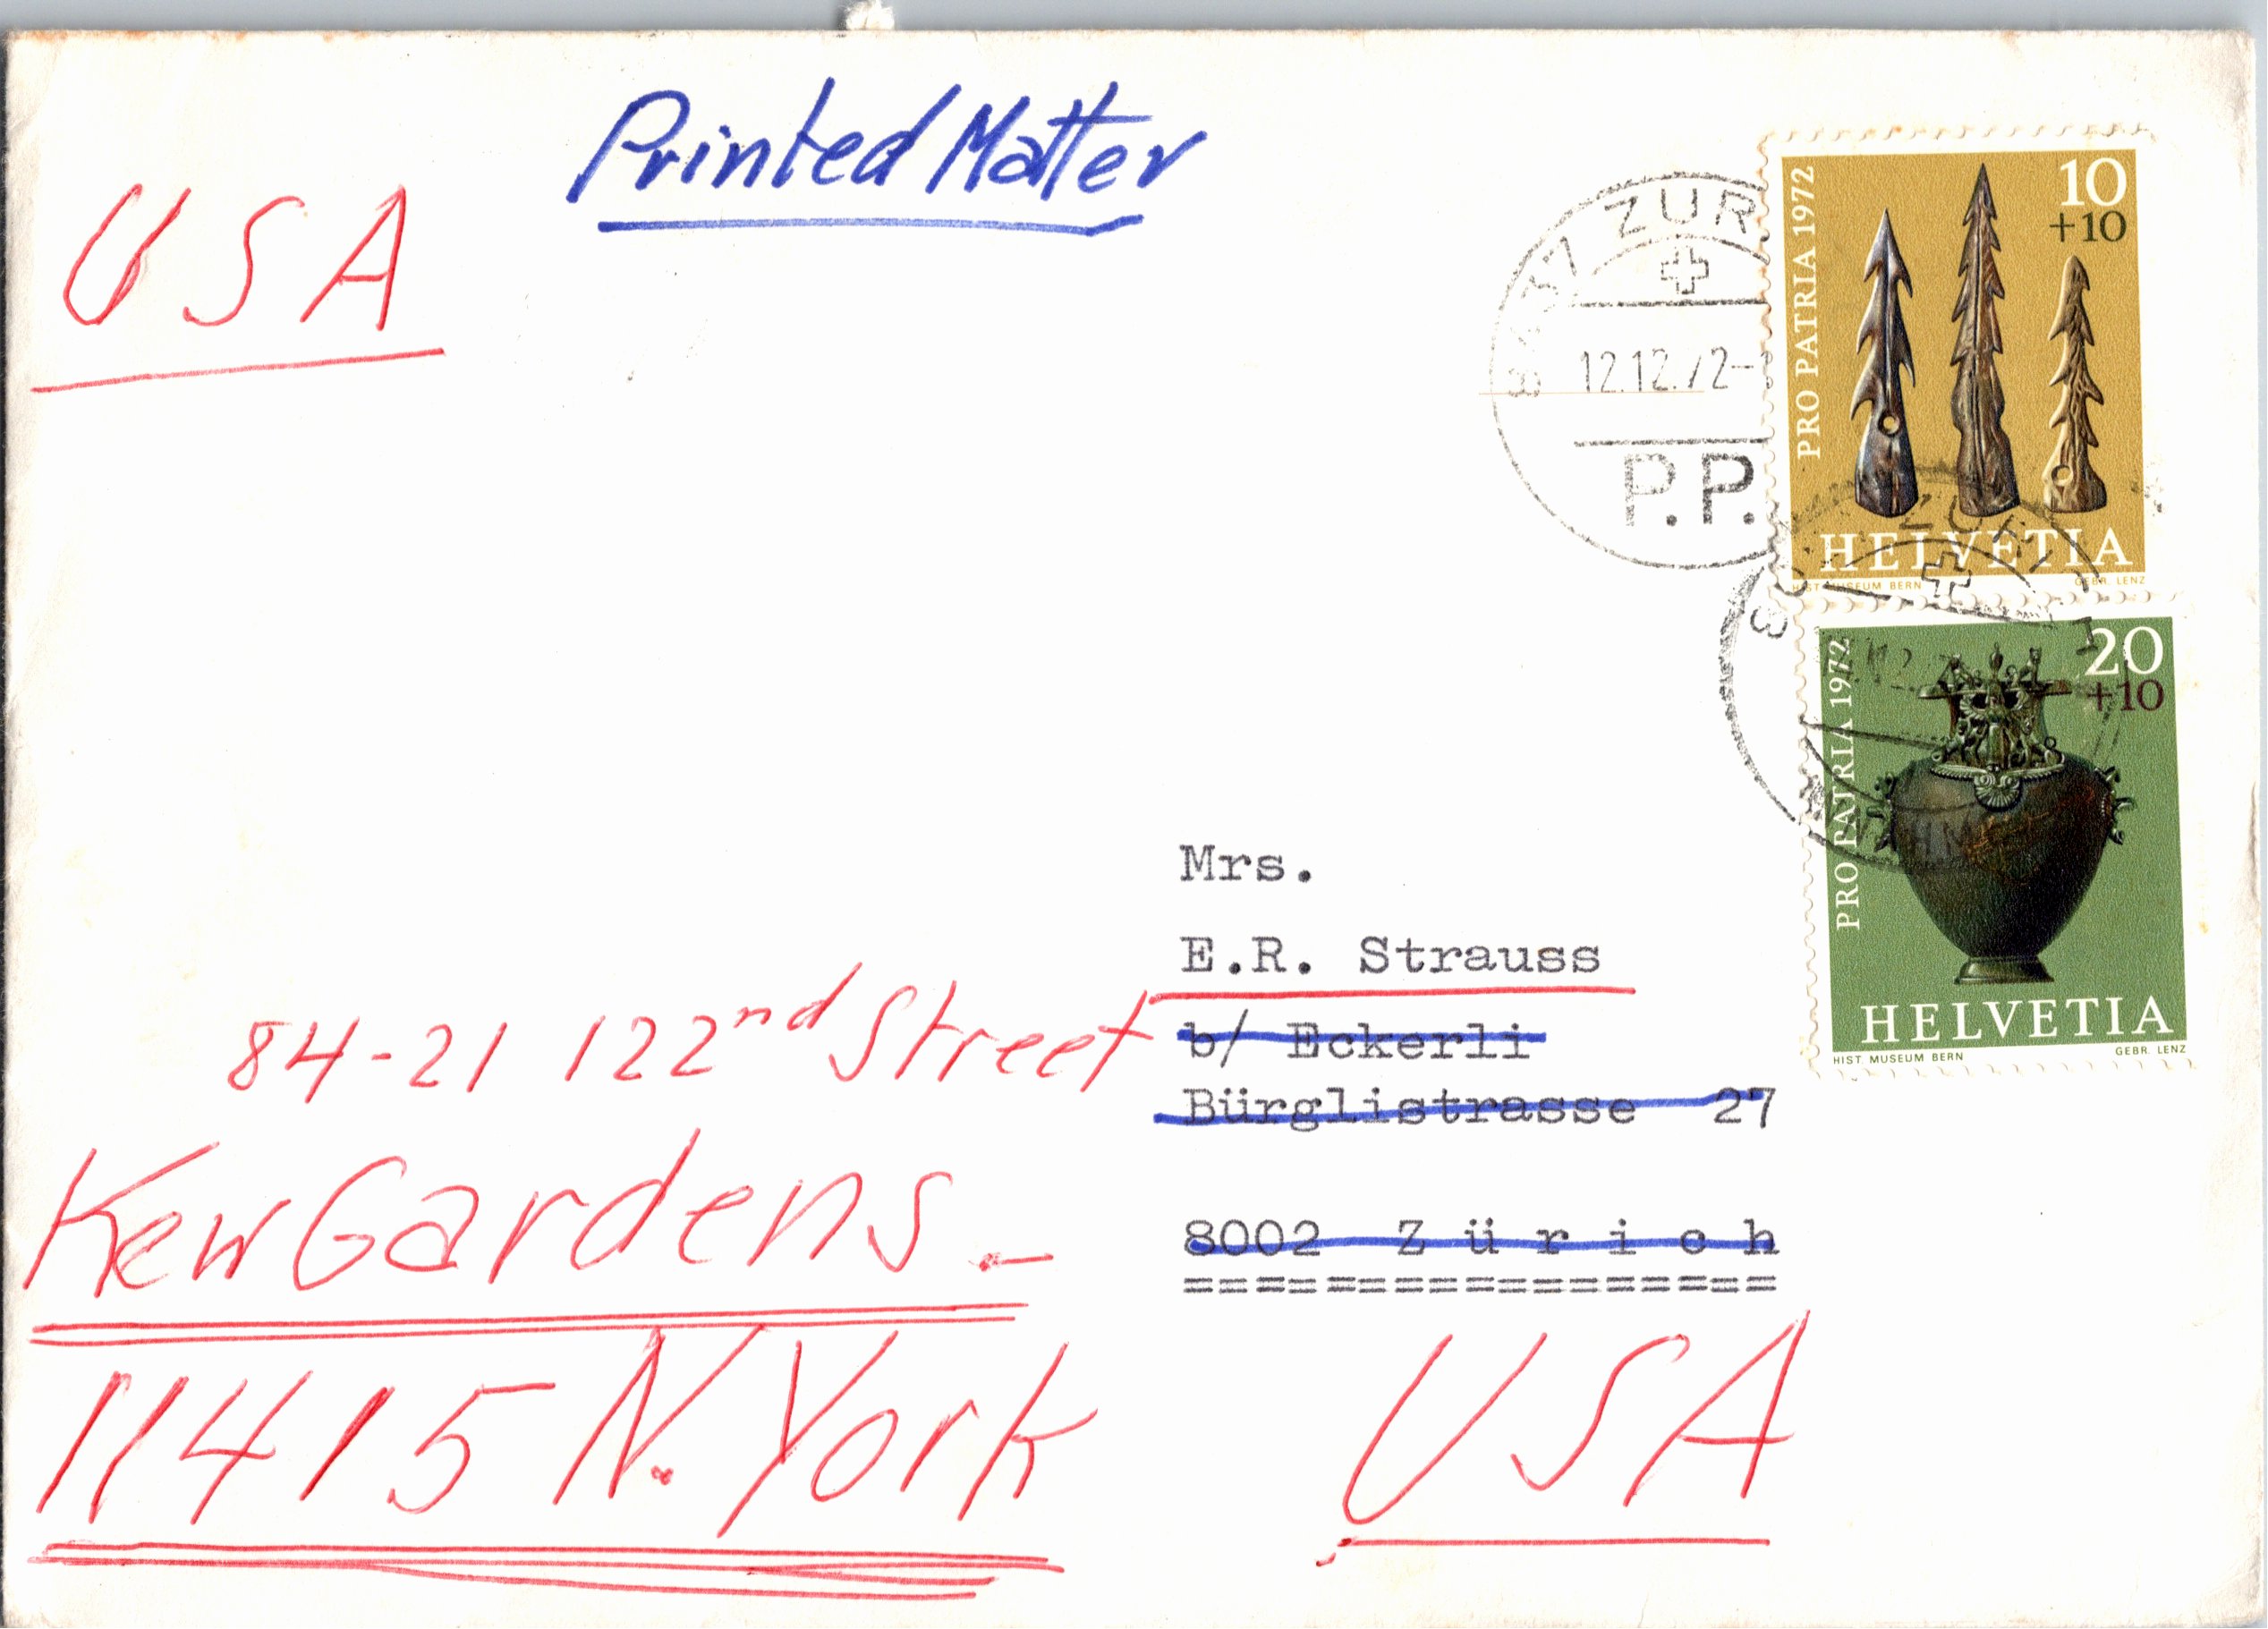 Printed Matter
USA
ZUR
12.12.72-
P.P.
PRO PATRIA 1972
10
+10
HELVETIA
HIST. MUSEUM BERN
GEBR. LENZ
PRO PATRIA 1972
20
+10
HELVETIA
HIST. MUSEUM BERN
GEBR. LENZ
Mrs.
E.R. Strauss
b/ Eckerli
Bürglistrasse 27
8002 Zürich
================
84-21 122nd Street
Kew Gardens -
11415 N. York
USA